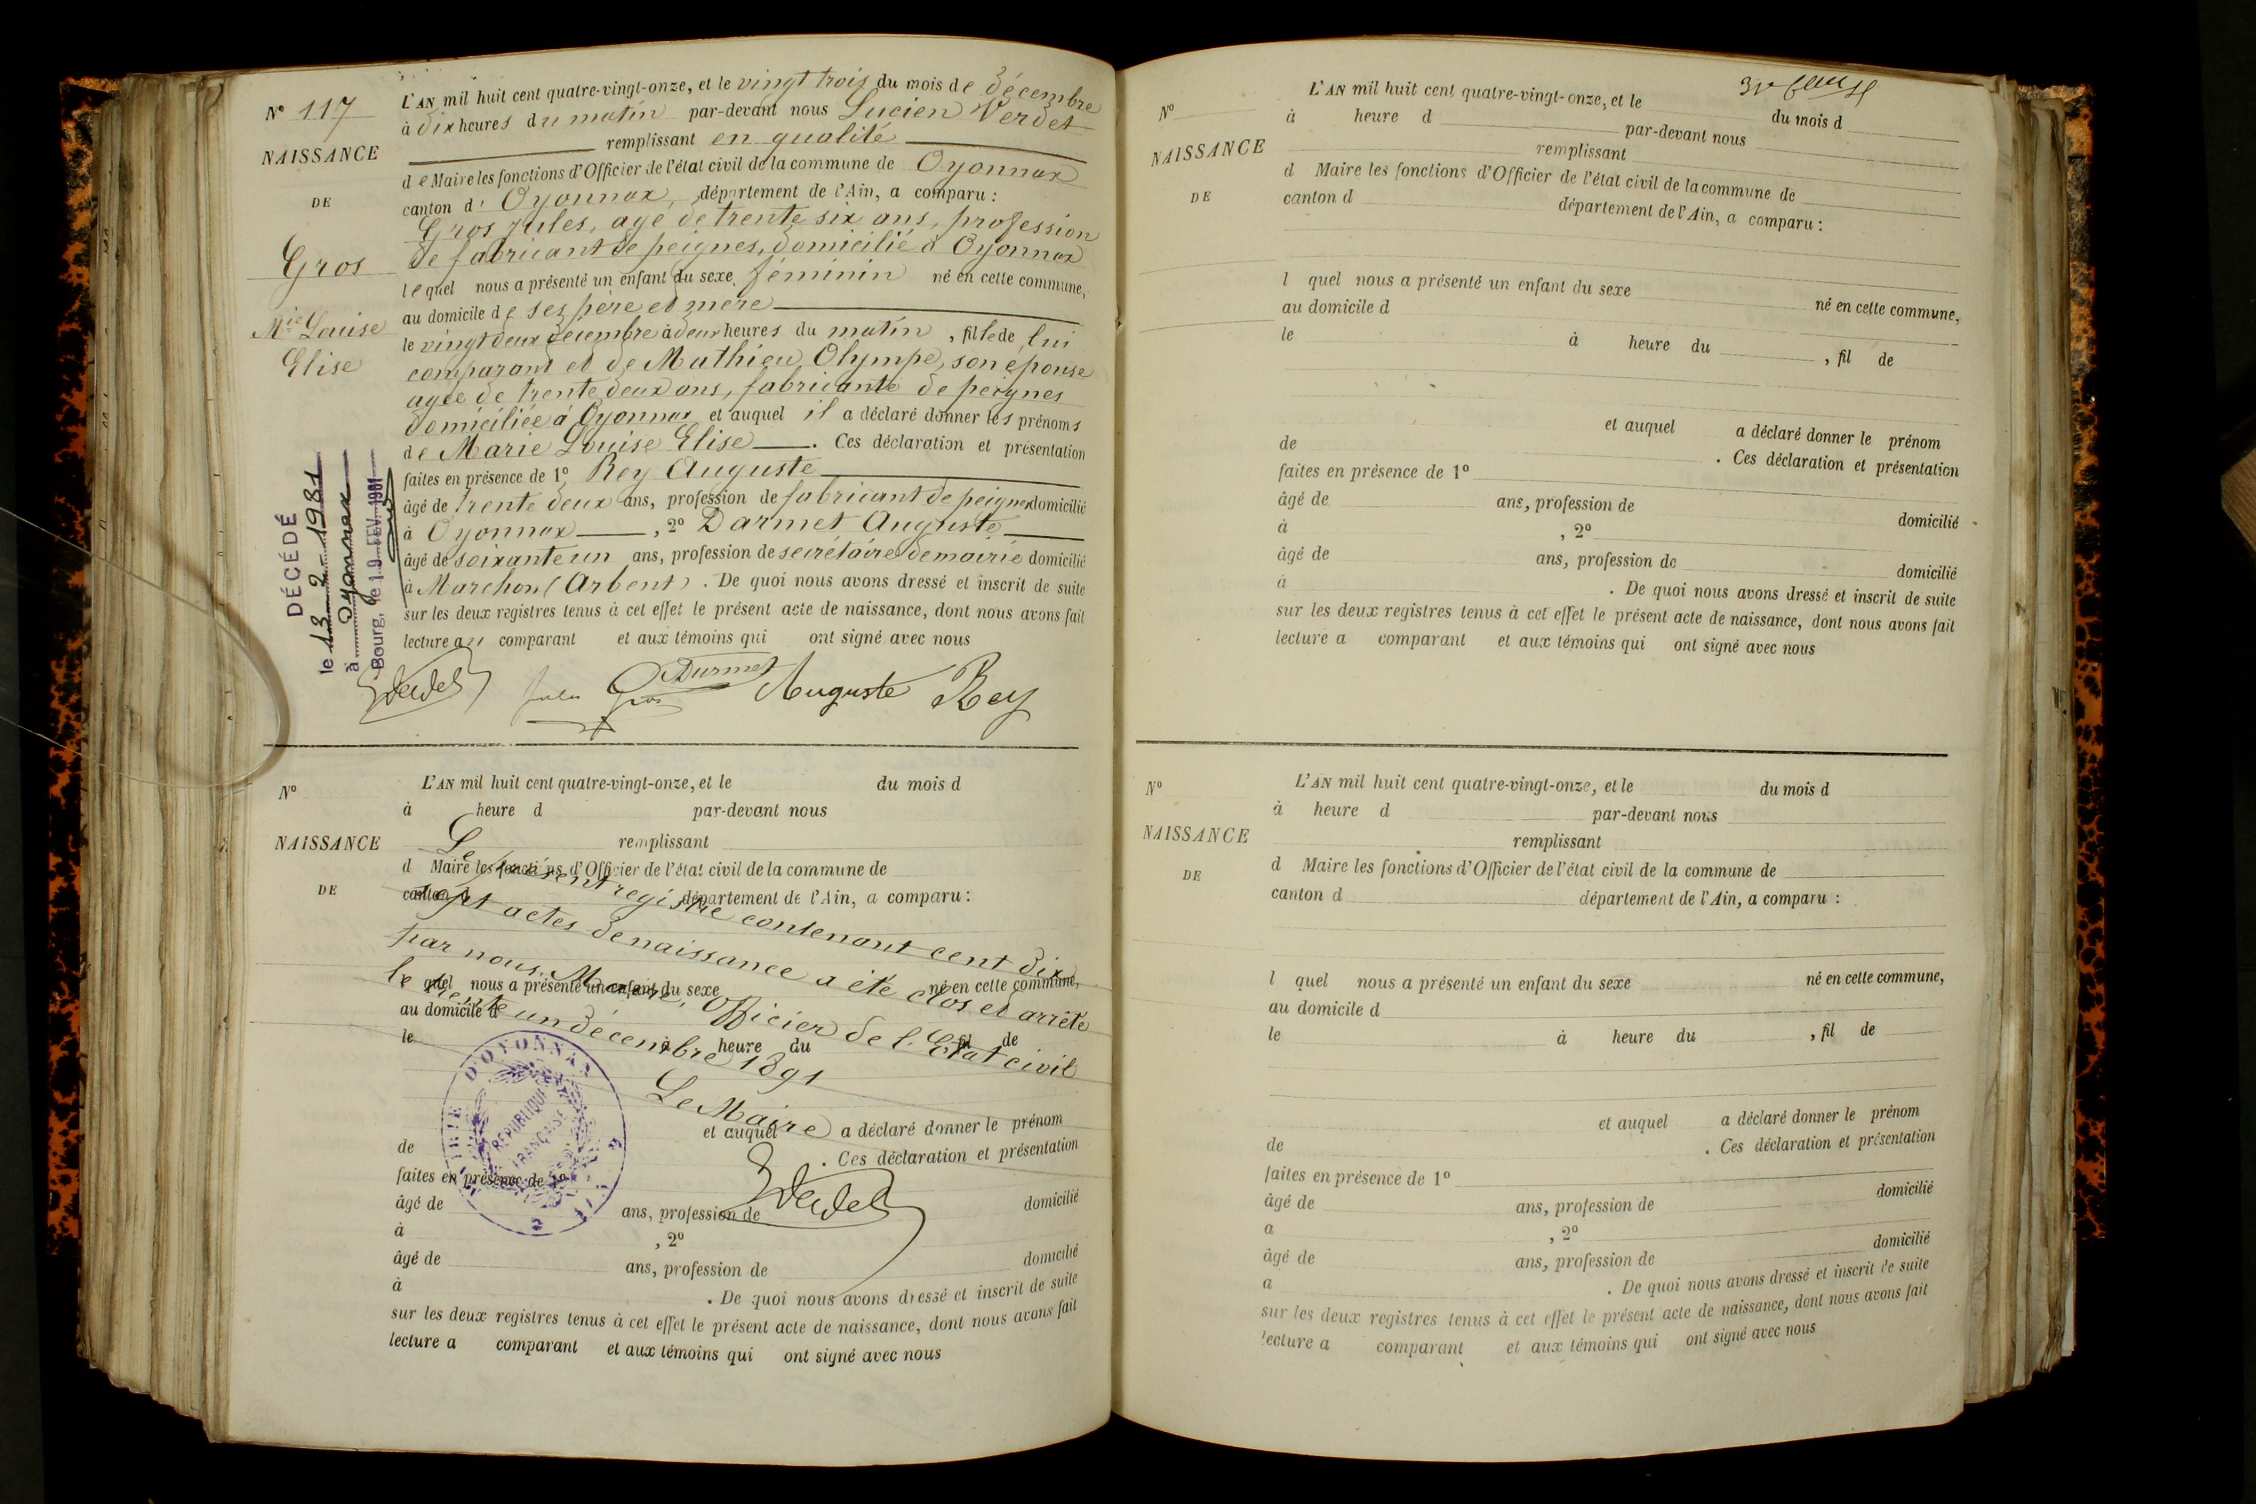 N° 117
NAISSANCE
DE
Gros
Mie Louise
Elise
L'AN mil huit cent quatre-vingt-onze, et le vingt trois du mois de décembre
à dix heures du matin par-devant nous Lucien Verdet
remplissant en qualité
de Maire les fonctions d'Officier de l'état civil de la commune de Oyonnax
canton d' Oyonnax, département de l'Ain, a comparu :
Gros Jules, agé de trente six ans, profession
de fabricant de peignes, domicilié à Oyonnax
lequel nous a présenté un enfant du sexe féminin né en cette commune,
au domicile de ses père et mère
le vingt deux décembre à deux heures du matin, fille de lui
comparant et de Mathieu Olympe, son épouse
agée de trente deux ans, fabricante de peignes
domiciliée à Oyonnax et auquel il a déclaré donner les prénoms
de Marie Louise Elise. Ces déclaration et présentation
faites en présence de 1° Rey Auguste
âgé de trente deux ans, profession de fabricant de peignes domicilié
à Oyonnax, 2° Darmet Auguste
âgé de soixante un ans, profession de secrétaire de mairie domicilié
à Marchon (Arbent). De quoi nous avons dressé et inscrit de suite
sur les deux registres tenus à cet effet le présent acte de naissance, dont nous avons fait
lecture au comparant et aux témoins qui ont signé avec nous
Verdet Jules Gros Darmet Auguste Rey
DÉCÉDÉ
le 13-2-1981
à Oyonnax
Bourg, le 19 FEV. 1981
N°
NAISSANCE
DE
L'AN mil huit cent quatre-vingt-onze, et le du mois d
à heure d par-devant nous
remplissant
d Maire les fonctions d'Officier de l'état civil de la commune de
canton d département de l'Ain, a comparu :
l quel nous a présenté un enfant du sexe né en cette commune,
au domicile d
le à heure du , fil de
et auquel a déclaré donner le prénom
de . Ces déclaration et présentation
faites en présence de 1°
âgé de ans, profession de domicilié
à , 2°
âgé de ans, profession de domicilié
à . De quoi nous avons dressé et inscrit de suite
sur les deux registres tenus à cet effet le présent acte de naissance, dont nous avons fait
lecture a comparant et aux témoins qui ont signé avec nous
Le présent registre contenant cent dix
sept actes de naissance a été clos et arrêté
par nous, Maire, Officier de l'Etat civil
le trente un décembre 1891
Le Maire
Verdet
MAIRIE D'OYONNAX
RÉPUBLIQUE
FRANÇAISE
N°
NAISSANCE
DE
L'AN mil huit cent quatre-vingt-onze, et le du mois d
à heure d par-devant nous
remplissant
d Maire les fonctions d'Officier de l'état civil de la commune de
canton d département de l'Ain, a comparu :
l quel nous a présenté un enfant du sexe né en cette commune,
au domicile d
le à heure du , fil de
et auquel a déclaré donner le prénom
de . Ces déclaration et présentation
faites en présence de 1°
âgé de ans, profession de domicilié
à , 2°
âgé de ans, profession de domicilié
à . De quoi nous avons dressé et inscrit de suite
sur les deux registres tenus à cet effet le présent acte de naissance, dont nous avons fait
lecture a comparant et aux témoins qui ont signé avec nous
N°
NAISSANCE
DE
L'AN mil huit cent quatre-vingt-onze, et le du mois d
à heure d par-devant nous
remplissant
d Maire les fonctions d'Officier de l'état civil de la commune de
canton d département de l'Ain, a comparu :
l quel nous a présenté un enfant du sexe né en cette commune,
au domicile d
le à heure du , fil de
et auquel a déclaré donner le prénom
de . Ces déclaration et présentation
faites en présence de 1°
âgé de ans, profession de domicilié
a , 2°
âgé de ans, profession de domicilié
a . De quoi nous avons dressé et inscrit de suite
sur les deux registres tenus à cet effet le présent acte de naissance, dont nous avons fait
lecture a comparant et aux témoins qui ont signé avec nous